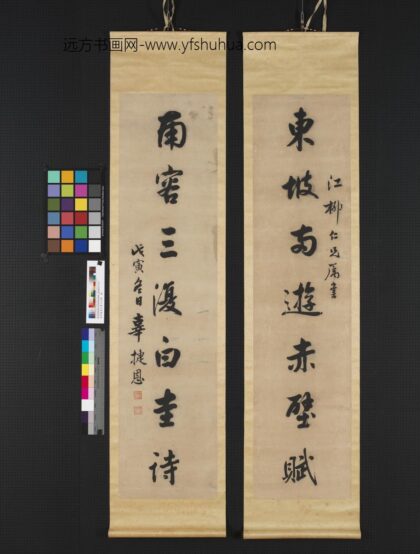 远方书画网-www.yfshuhua.com
東坡两遊赤壁賦
江柳仁兄屬書
南容三復白圭詩
戊寅冬日辜捷恩